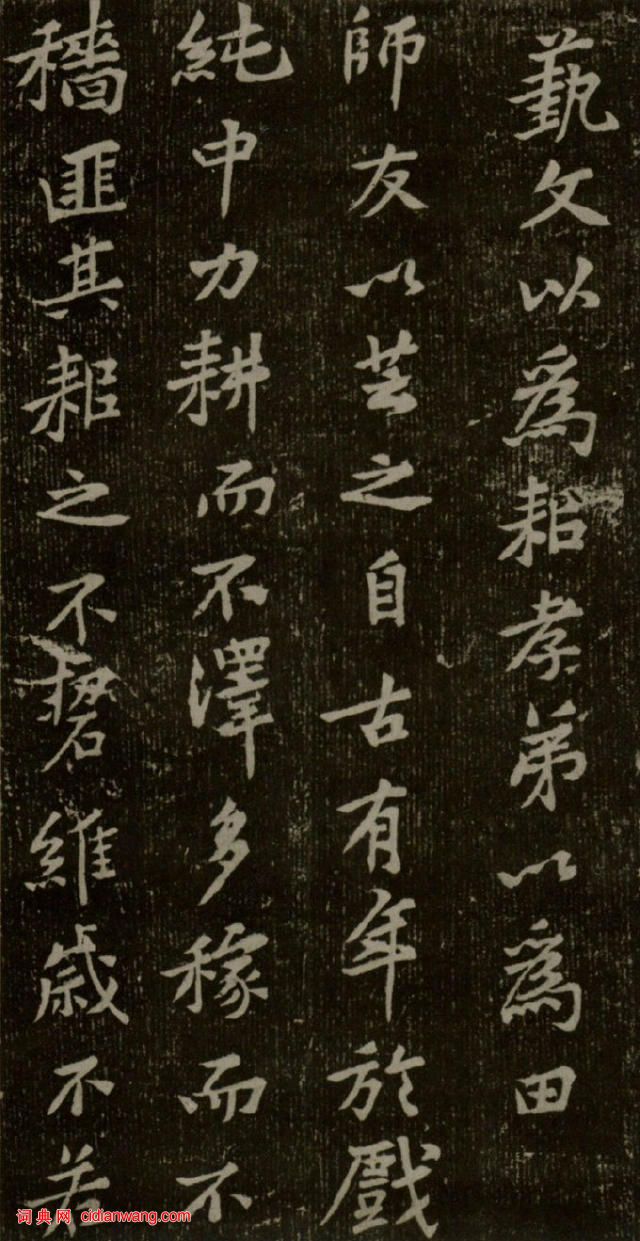 蓺文以為耜孝弟以為田
師友以芸之自古有年於戲
純中力耕而不澤多稼而不
穡匪其耜之不維歲不若
词典网 cidianwang.com